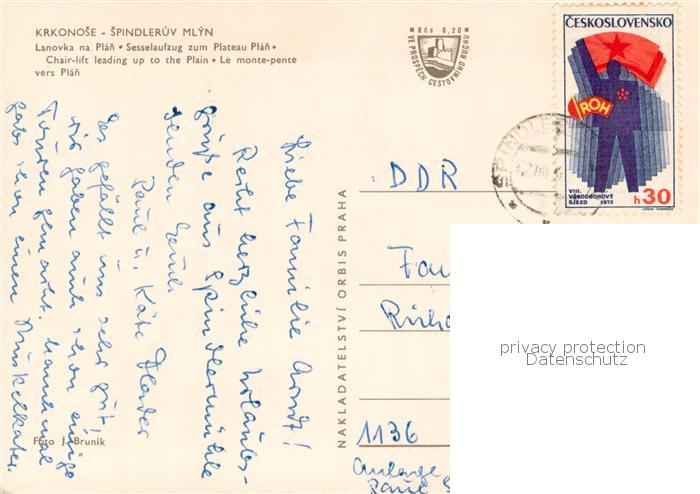 KRKONOŠE - ŠPINDLERŮV MLÝN
Lanovka na Pláň • Sesselaufzug zum Plateau Pláň •
Chair-lift leading up to the Plain • Le monte-pente
vers Pláň
Kčs 0,20
VE PROSPĚCH CESTOVNÍHO RUCHU
ČESKOSLOVENSKO
ROH
VIII.
VŠEODBOROVÝ
SJEZD 1972
h 30
Liebe Familie Arndt!
Recht herzliche Urlaubs-
grüße aus Spindlermühle
senden Euch
Paul u. Käte
Es gefällt uns sehr gut,
wir haben auch schon einige
Touren gemacht. Manchmal
gabs schon einen Muskelkater.
NAKLADATELSTVÍ ORBIS PRAHA
DDR
Fam
1136
Paul
Foto J. Bruník
privacy protection
Datenschutz